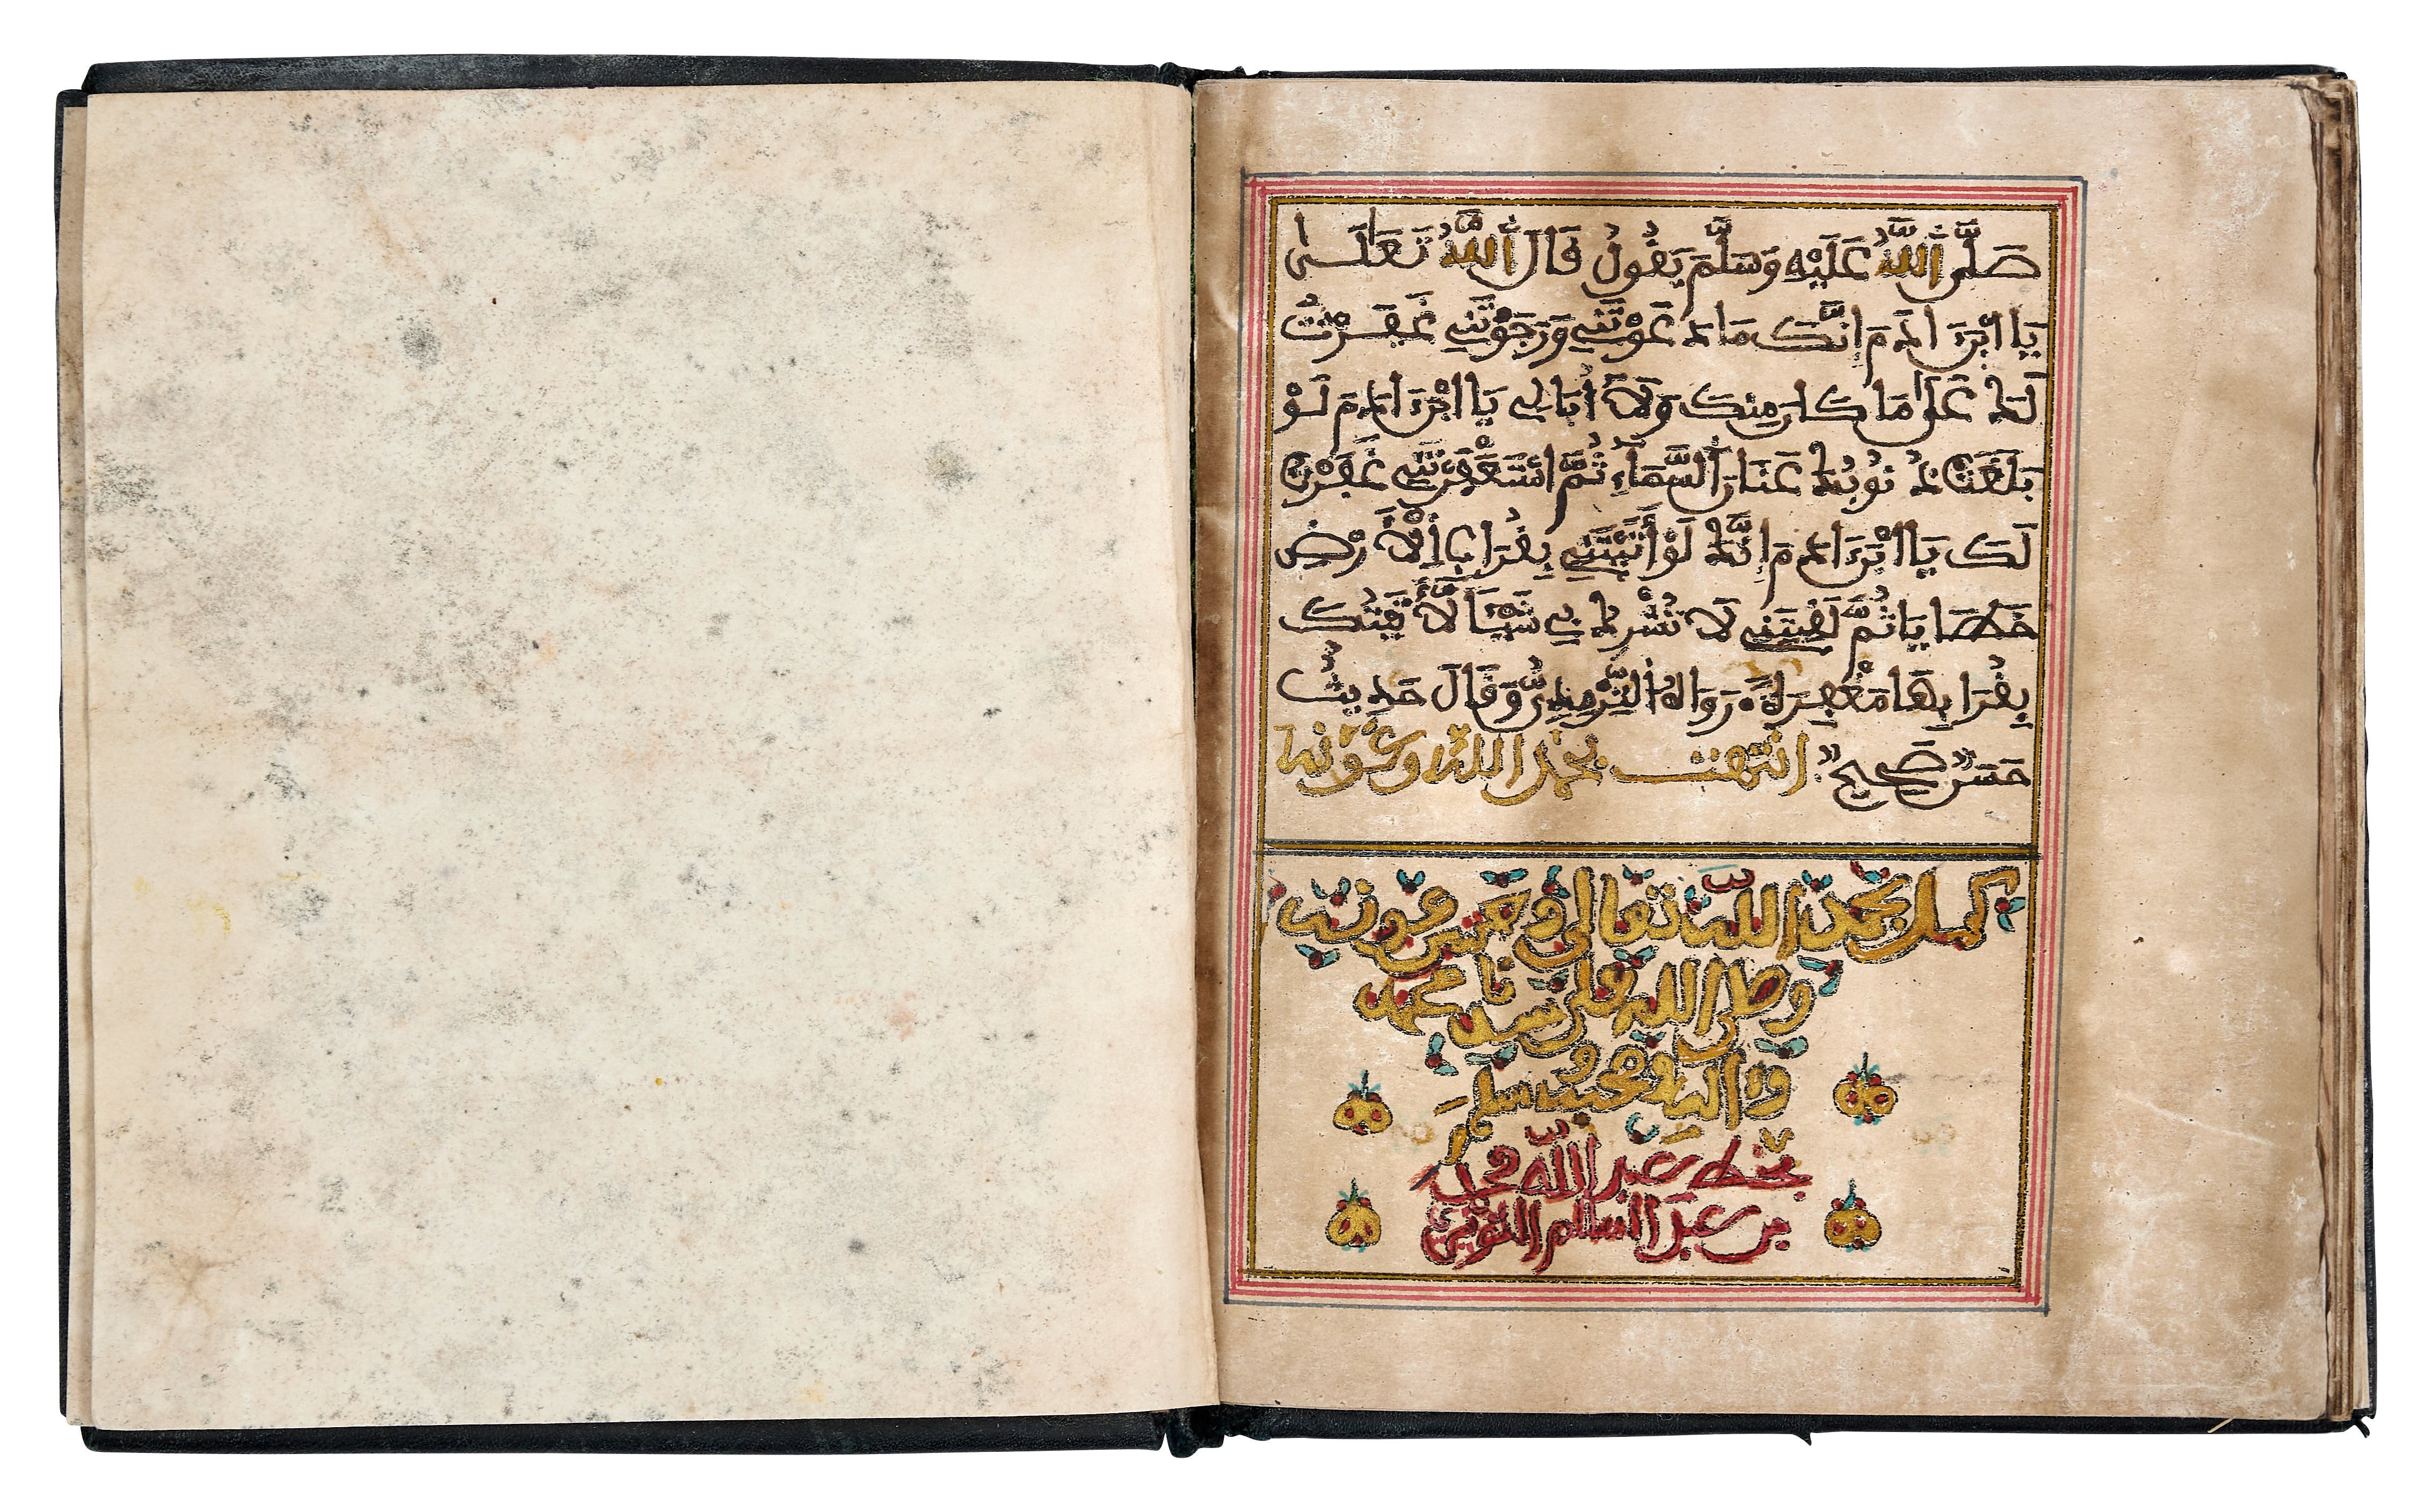 صَلَّى اللَّهُ عَلَيْهِ وَسَلَّمَ يَقُولُ قَالَ اللَّهُ تَعَالَى
يَا ابْنَ ادَمَ إِنَّكَ مَا دَعَوْتَنِي وَرَجَوْتَنِي غَفَرْتُ
لَكَ عَلَى مَا كَانَ مِنكَ وَلَا أُبَالِي يَا ابْنَ ادَمَ لَوْ
بَلَغَتْ ذُنُوبُكَ عَنَانَ السَّمَاءِ ثُمَّ اسْتَغْفَرْتَنِي غَفَرْتُ
لَكَ يَا ابْنَ ادَمَ إِنَّكَ لَوْ أَتَيْتَنِي بِقُرَابِ الْأَرْضِ
خَطَايَا ثُمَّ لَقِيتَنِي لَا تُشْرِكُ بِي شَيْئًا لَأَتَيْتُكَ
بِقُرَابِهَا مَغْفِرَةً رَوَاهُ التِّرْمِذِيُّ وَقَالَ حَدِيثٌ
حَسَنٌ صَحِيحٌ انتهت بحمد الله وعونه
كمل بحمد الله تعالى وحسن عونه
وصلى الله على سيدنا محمد
واله وصحبه وسلم
بخط عبد الله
بن عبد السلام